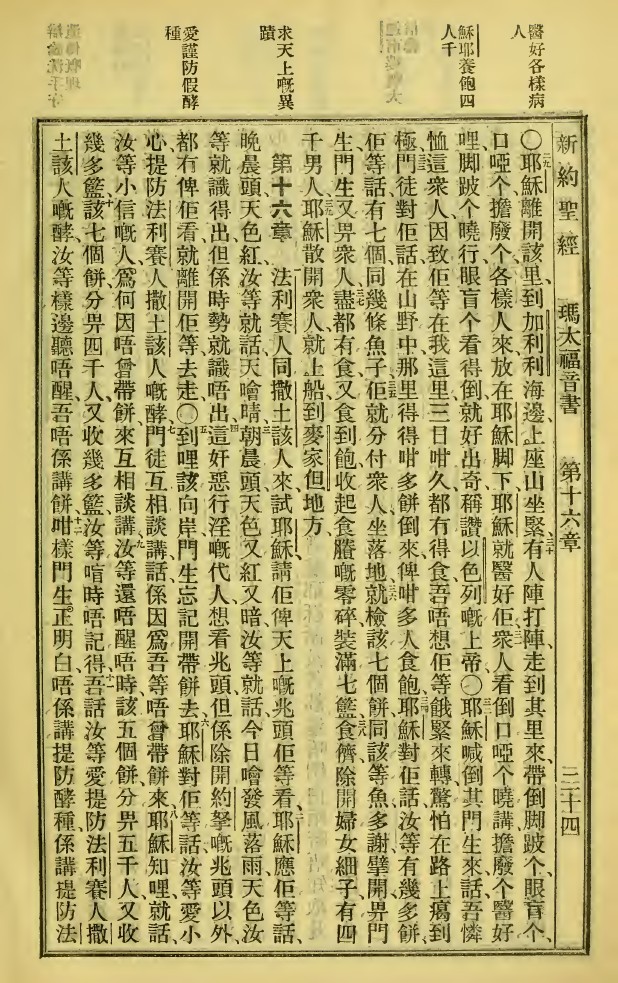 醫好各樣病
人
穌耶養飽四
人千
求天上嘅異
蹟
愛謹防假酵
種
新約聖經 瑪太福音書 第十六章 三十四
〇耶穌離開該里、到加利利海邊、上座山坐緊、三十有人陣打陣走到其里來、帶倒脚跛个、眼盲个、
口啞个、擔廢个、各樣人來、放在耶穌脚下、耶穌就醫好佢、衆人看倒口啞个曉講、擔廢个醫好
哩、脚跛个曉行、眼盲个看得倒、就好出奇、稱讚以色列嘅上帝、〇耶穌喊倒其門生來話、吾憐
恤這衆人、因致佢等在我這里三日咁久、都有得食、吾唔想佢等餓緊來轉、驚怕在路上㾮到
極、門徒對佢話、在山野中、那里得得咁多餅倒來、俾咁多人食飽、耶穌對佢話、汝等有幾多餅、
佢等話、有七個、同幾條魚子、佢就分付衆人坐落地、就檢該七個餅、同該等魚、多謝擘開、畀門
生、門生又畀衆人、盡都有食、又食到飽、收起食賸嘅零碎、裝滿七籃、食儕、除開婦女細子、有四
千男人、耶穌散開衆人、就上船、到麥家但地方、
第十六章 一法利賽人同撒土該人來試耶穌、請佢俾天上嘅兆頭佢等看、二耶穌應佢等話、
晚晨頭天色紅、汝等就話天噲晴、三朝晨頭天色又紅又暗、汝等就話今日噲發風落雨、天色汝
等就識得出、但係時勢就識唔出、四這奸惡行淫嘅代人、想看兆頭、但係除開約拏嘅兆頭以外、
都有俾佢看、就離開佢等去走、〇五到哩該向岸、門生忘記開帶餅去、六耶穌對佢等話、汝等愛小
心提防法利賽人撒土該人嘅酵、七門徒互相談講話、係因爲吾等唔曾帶餅來、八耶穌知哩、就話、
汝等小信嘅人、爲何因唔曾帶餅來互相談講、九汝等還唔醒唔時、該五個餅、分畀五千人、又收
幾多籃、十該七個餅、分畀四千人、又收幾多籃、汝等喑時唔記得、十一吾話汝等愛提防法利賽人撒
土該人嘅酵、汝等樣邊聽唔醒、吾唔係講餅咁樣、十二門生正明白唔係講提防酵種、係講提防法